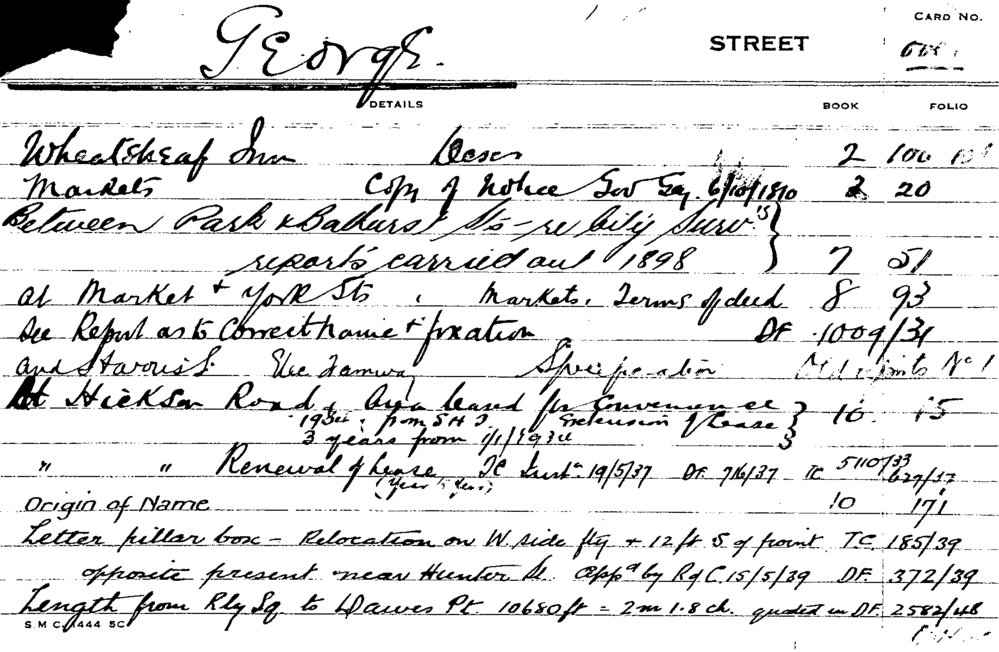 CARD No.
George. STREET
DETAILS BOOK FOLIO
Wheatsheaf Inn 2 100
Markets Copy of Notice Gov Gaz. 6/10/1810 2 20
Between Park & Bathurst Sts - re City Surv's
reports carried out 1898 7 51
at Market & York Sts . Markets. Terms of deed 8 93
See Report as to Correct name & fixation DF 1009/31
and Harris St. Elec Tramway Specification No 1
At Hickson Road, Area leased for Convenience 10 15
1934. from S H T. Extension of Lease
3 years from 1/1/1934
" " Renewal of Lease TC 19/5/37 DF. 716/37 TC 5110/33
(Year to Year) 629/37
Origin of Name 10 171
Letter pillar box - Relocation on W side ftg & 12 ft S of point TC. 185/39
opposite present near Hunter St. appd by R of C 15/5/39 DF. 372/39
Length from Rly Sq to Dawes Pt. 10680 ft = 2m 1.8 ch. quoted in DF. 2582/48
S.M.C. 1444 5C